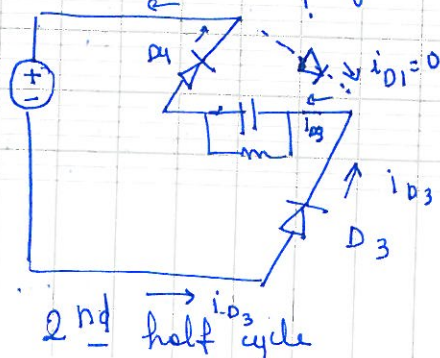 D4
+
-
i_D1 = 0
i_D3
i_D3
D3
i_D3
2nd half cycle